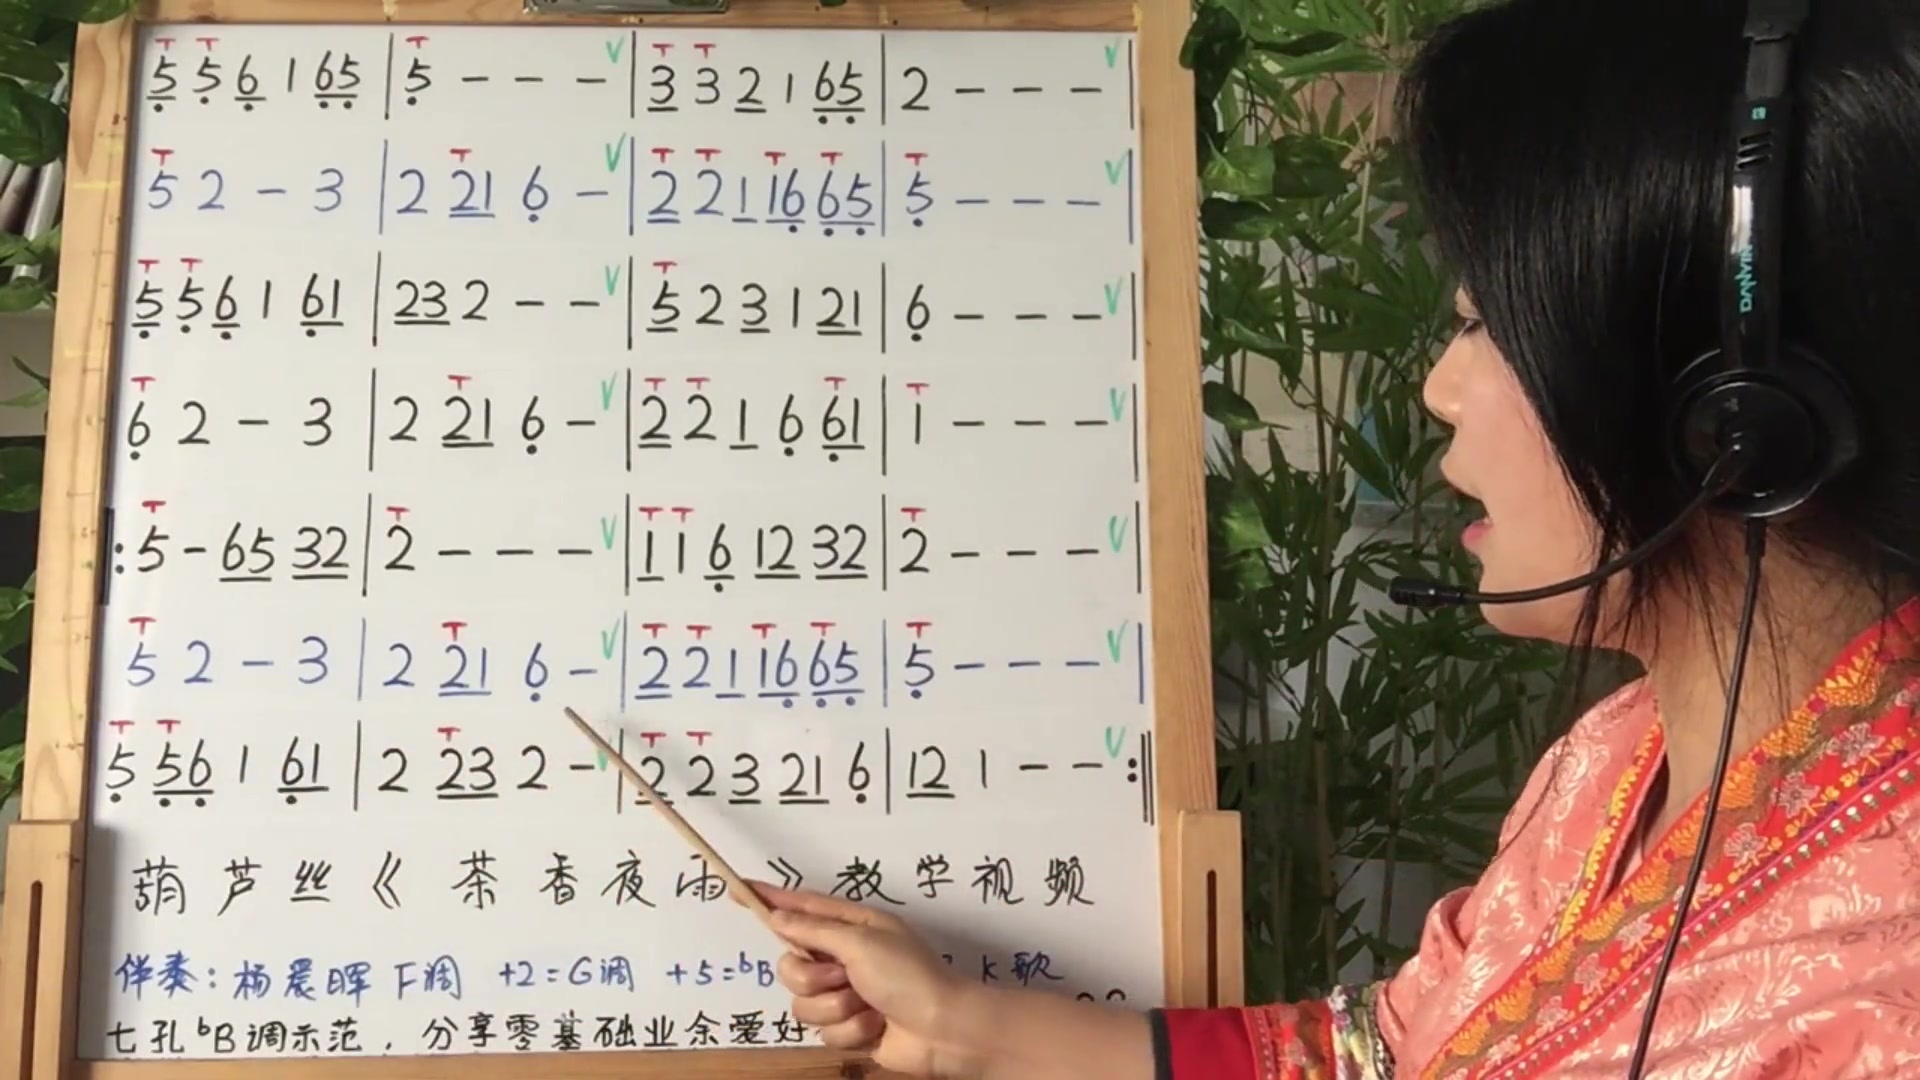 5 5 6 1 65 | 5 - - - V | 3 3 2 1 65 | 2 - - - V |
5 2 - 3 | 2 21 6 - V | 2 2 1 16 65 | 5 - - - V |
5 5 6 1 61 | 23 2 - - V | 5 2 3 1 21 | 6 - - - V |
6 2 - 3 | 2 21 6 - V | 2 2 1 6 61 | 1 - - - V |
|: 5 - 65 32 | 2 - - - V | 1 1 6 12 32 | 2 - - - V |
5 2 - 3 | 2 21 6 - V | 2 2 1 16 65 | 5 - - - V |
5 56 1 61 | 2 23 2 - V | 2 2 3 21 6 | 12 1 - - V :||
葫芦丝《茶香夜雨》教学视频
伴奏:杨晨晖 F调 +2=G调 +5=bB K歌
七孔bB调示范,分享零基础业余爱好
DANYIN